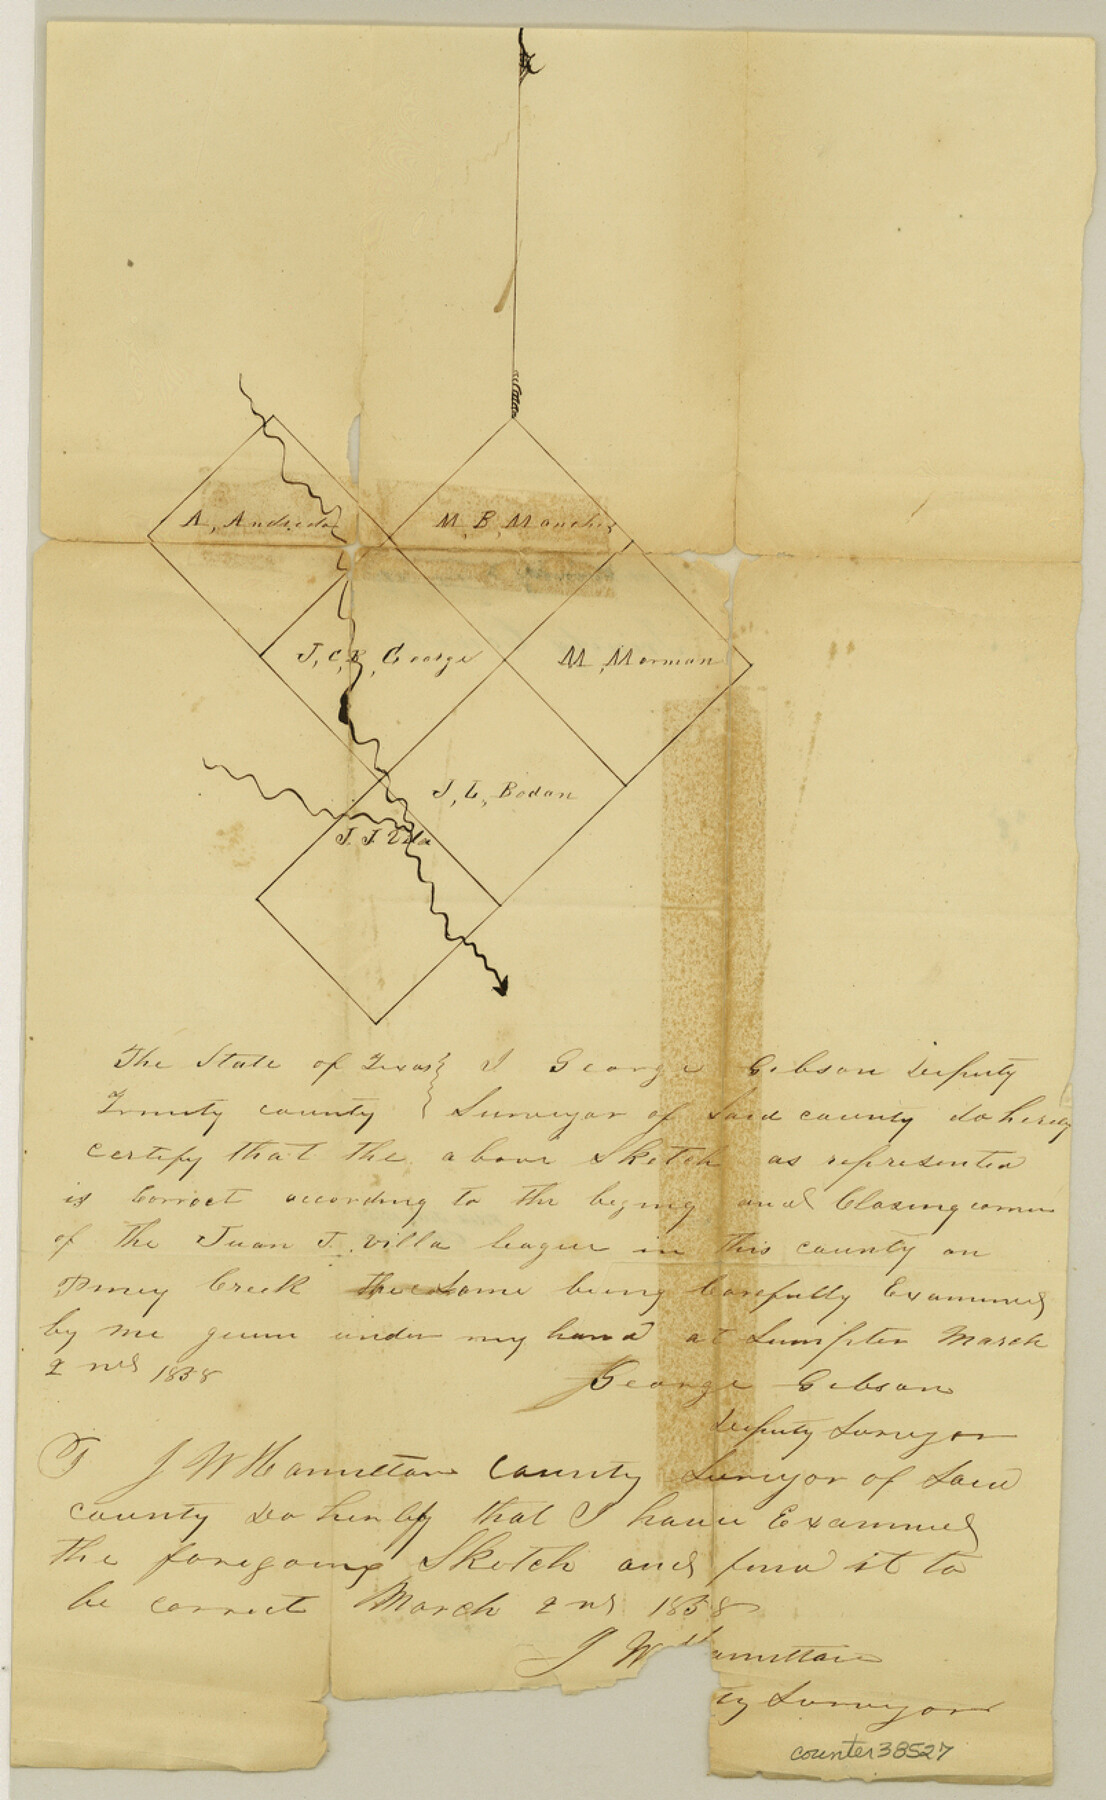 A, Andreda
M, B, Manches
J, C, R, George
M, Morman
J, L, Bodan
J. J. Villa
The State of Texas } I George Gibson Deputy
Trinity county } Surveyor of Said county do hereby
certify that the above Sketch as represented
is Correct according to the begning and Closing corners
of the Juan J. Villa league in this county on
Piney Creek the Same being Carefully Examined
by me given under my hand at Sumpter March
2nd 1858
George Gibson
Deputy Surveyor
I J W Hamilton County Surveyor of Said
county Do herby that I have Examined
the foregoing Sketch and find it to
be correct March 2nd 1858
J W Hamilton
ty Surveyor
counter 38527